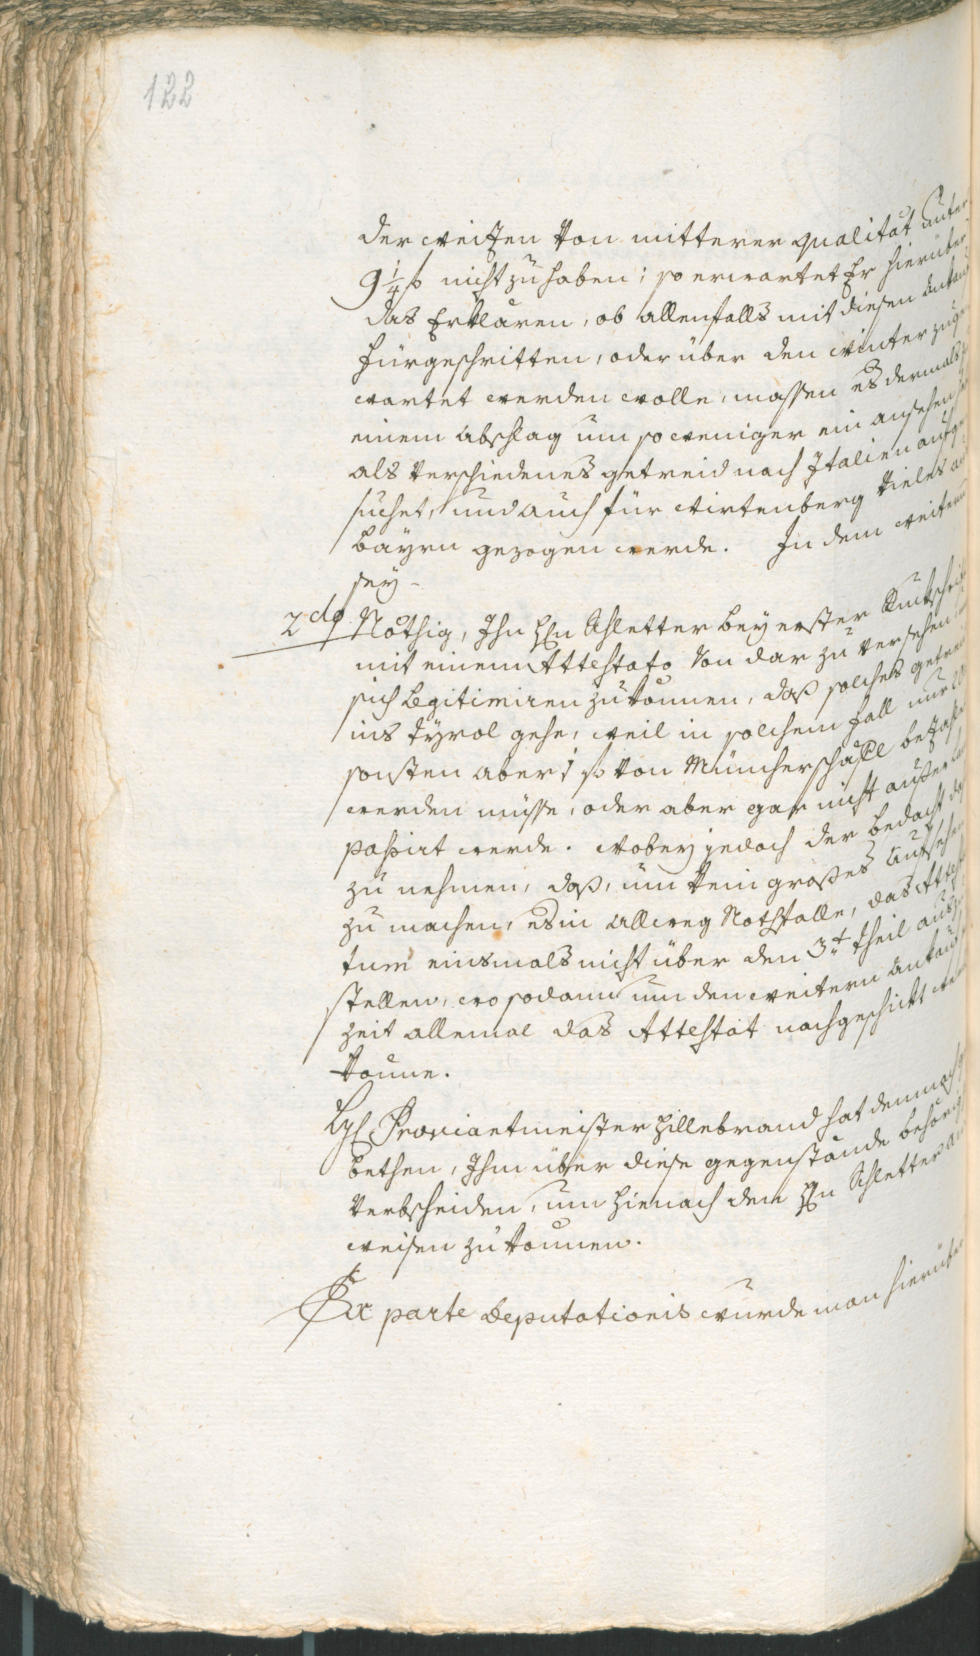 122
der Weitzen von mitterer qualität unter
9¼ f nicht zu haben; so erwartet Er hierüber
das Erklären, ob allenfalls mit diesen Ankauf
fürgeschritten, oder über den Winter zuge
wartet werden wolle, massen es dermals
einem Abschlag um so weniger ein ansehen
als verschiedenes getreid nach Italien aufge
suchet, und auch für Wirtenberg vieles
Bayrn gezogen werde. In dem weitern
sey
2do Nöthig, Ihn Hn Schletter bey erster
mit einem Attestato von dar zu versehen
sich Legitimiren zu können, daß solches getreid
ins Tyrol gehe, weil in solchem fall nur
sonsten aber 1 f von Müncherschäffl bezahlt
werden müsse, oder aber gar nicht außer
passirt werde. Wobey jedoch der bedacht
zu nehmen, daß, um kein großes Aufsehen
zu machen, es in allweg Nothfalle, das Attest
tum einsmals nicht über den 3t theil aus
stellen, wo sodann um den weitern Ankauf
zeit allemal das Attestat nachgeschickt
könne.
Proviantmeister Hillebrand hat demnach
bethen, Ihm über diese gegenstände behörig
verbscheiden, um hienach dem Hn Schletter
weisen zu können.
Ex parte Deputationis wurde man hierüber